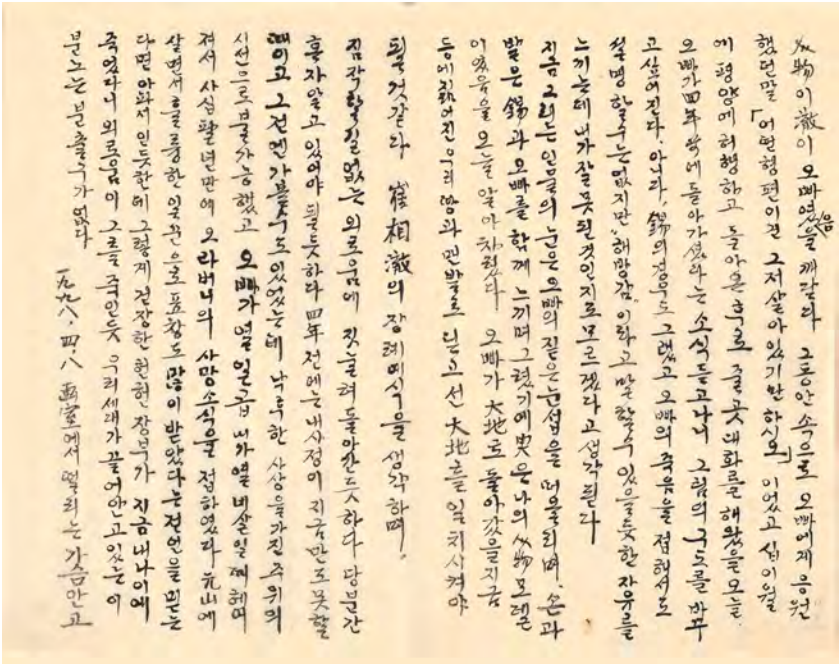 人物이 澈이 오빠였음을 깨닫다 그동안 속으로 오빠에게 응원
했던말 「어떤형편이건 그저살아있기만 하시오」이었고 십이월
에 평양에 허행하고 돌아온 후로 줄곳 대화를 해왔을 오늘
오빠가 四年 前에 돌아가셨다는 소식듣고나니 그림의 구도를 바꾸
고 싶어진다. 아니라, 錫의 경우도 그랬고 오빠의 죽음을 접해서도
설명 할수는 없지만 "해방감"이라고 말할수 있을듯한 자유를
느끼는데 내가 잘못된 것인지도 모르겠다고 생각된다
지금 그리는 인물의 눈은 오빠의 짙은 눈섭을 떠올리며, 손과
발은 錫과 오빠를 함께 느끼며 그렸기에 둘은 나의 人物 모델
이었음을 오늘 알아차렸다! 오빠가 大地로 돌아갔을 지금
등에 짊어진 우리 땅과 맨발로 딛고 선 大地를 일치시켜야
될것같다 崔相澈의 장례예식을 생각하며,
짐작할길 없는 외로움에 짓눌려 돌아간듯 하다 당분간
혼자 알고 있어야 될듯하다 四年 전에는 내사정이 지금만도 못할
때이고 그전엔 가볼수도 있었는데 낙후한 사상을 가진 주위의
시선으로 불가능했고 오빠가 열일곱 내가 열네살일때 헤어
져서 사십팔년만에 오라버니의 사망소식을 접하였다 元山에
살면서 훌륭한 일꾼으로 표창도 많이 받았다는 전언을 믿는
다면 아파서 인듯한데 그렇게 건장한 헌헌장부가 지금 내나이에
죽었다니 외로움이 그를 죽인듯 우리세대가 끌어안고있는 이
분노는 분출구가 없다
一九九八. 四. 八 畵室에서 떨리는 가슴안고